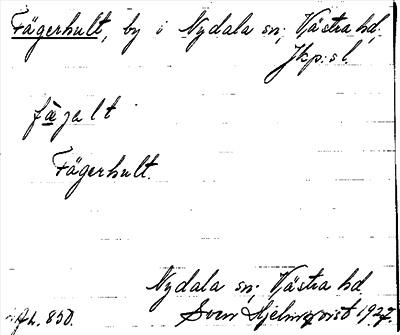 Fägerhult, by i Nydala sn; Västra hd;
Jkp:s l.
fä̀galt
Fägerhult.
Nydala sn; Västra hd
Sven Hjelmqvist 1927.
fl. 850.